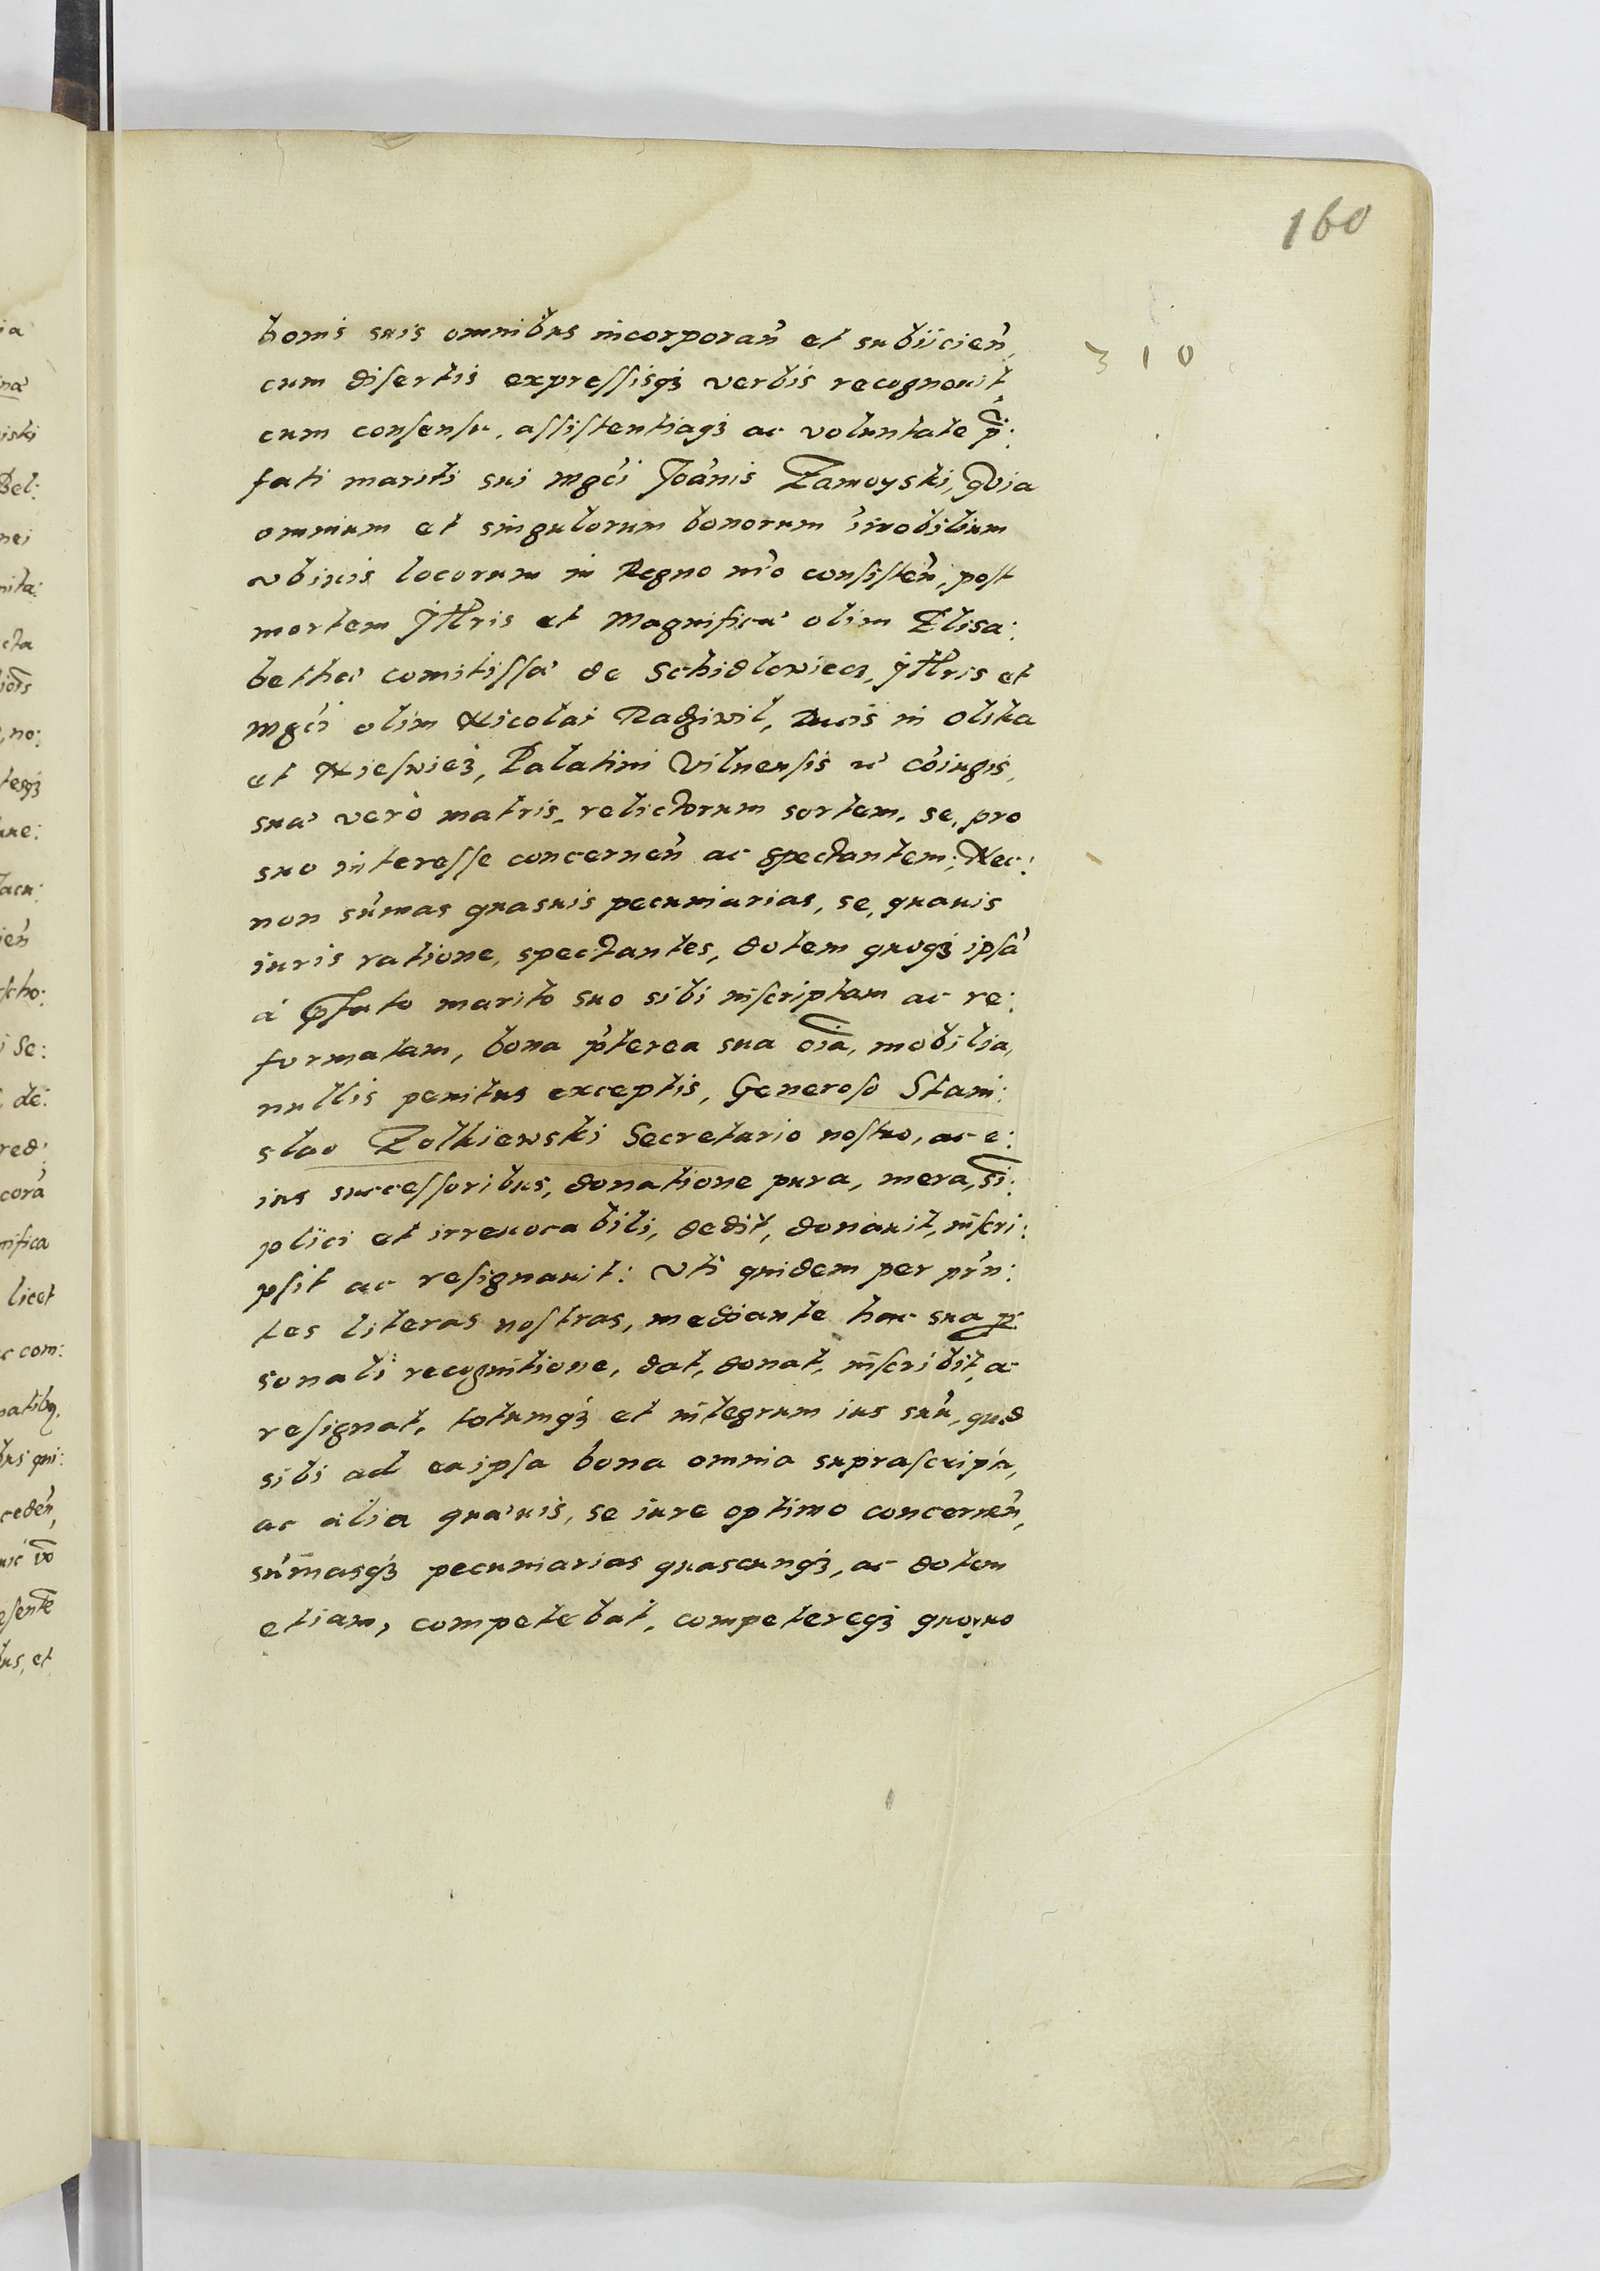 160
310
bonis suis omnibus incorporan̄ et subiicien̄,
cum disertis expressisq3 verbis recognouit,
cum consensu, assistentiaq3 ac voluntate p̄:
fati mariti sui Mgci Joānis Zamoyski, Quia
omnium et singulorum bonorum īmobilium
vbiuis locorum in Regno nr̄o consisten̄, post
mortem Jllris et Magnificæ olim Elisa:
bethæ comitissæ de Schidlowiecz, Jllris et
Mgci olim Nicolai Radziwil, Ducis in Olika
et Niesviez, Palatini Vilnensis &c cōiugis,
suæ verò matris, relictorum sortem, se, pro
suo interesse concernen̄ ac spectantem; Nec:
non sūmas quasuis pecuniarias, se, quauis
iuris ratione, spectantes, dotem quoq3 ipsā
à p̄fato marito suo sibi inscriptam ac re:
formatam, bona p̄terea sua oīa, mobilia,
nullis penitus exceptis, Generoso Stani:
slao Zolkiewski Secretario nostro, ac e:
ius successoribus, donatione pura, mera, sī:
plici et irreuocabili, dedit, donauit, inscri:
psit ac resignauit: Vti quidem per pr̄n:
tes literas nostras, mediante hac sua p̱
sonali recognitione, dat, donat, inscribit, ac
resignat, totumq3 et integrum ius suū, quod
sibi ad eaipsa bona omnia suprascripta,
ac alia quæuis, se iure optimo concernen̄,
sūmasq3 pecuniarias quascunq3, ac dotem
etiam, competebat, competereq3 quouo